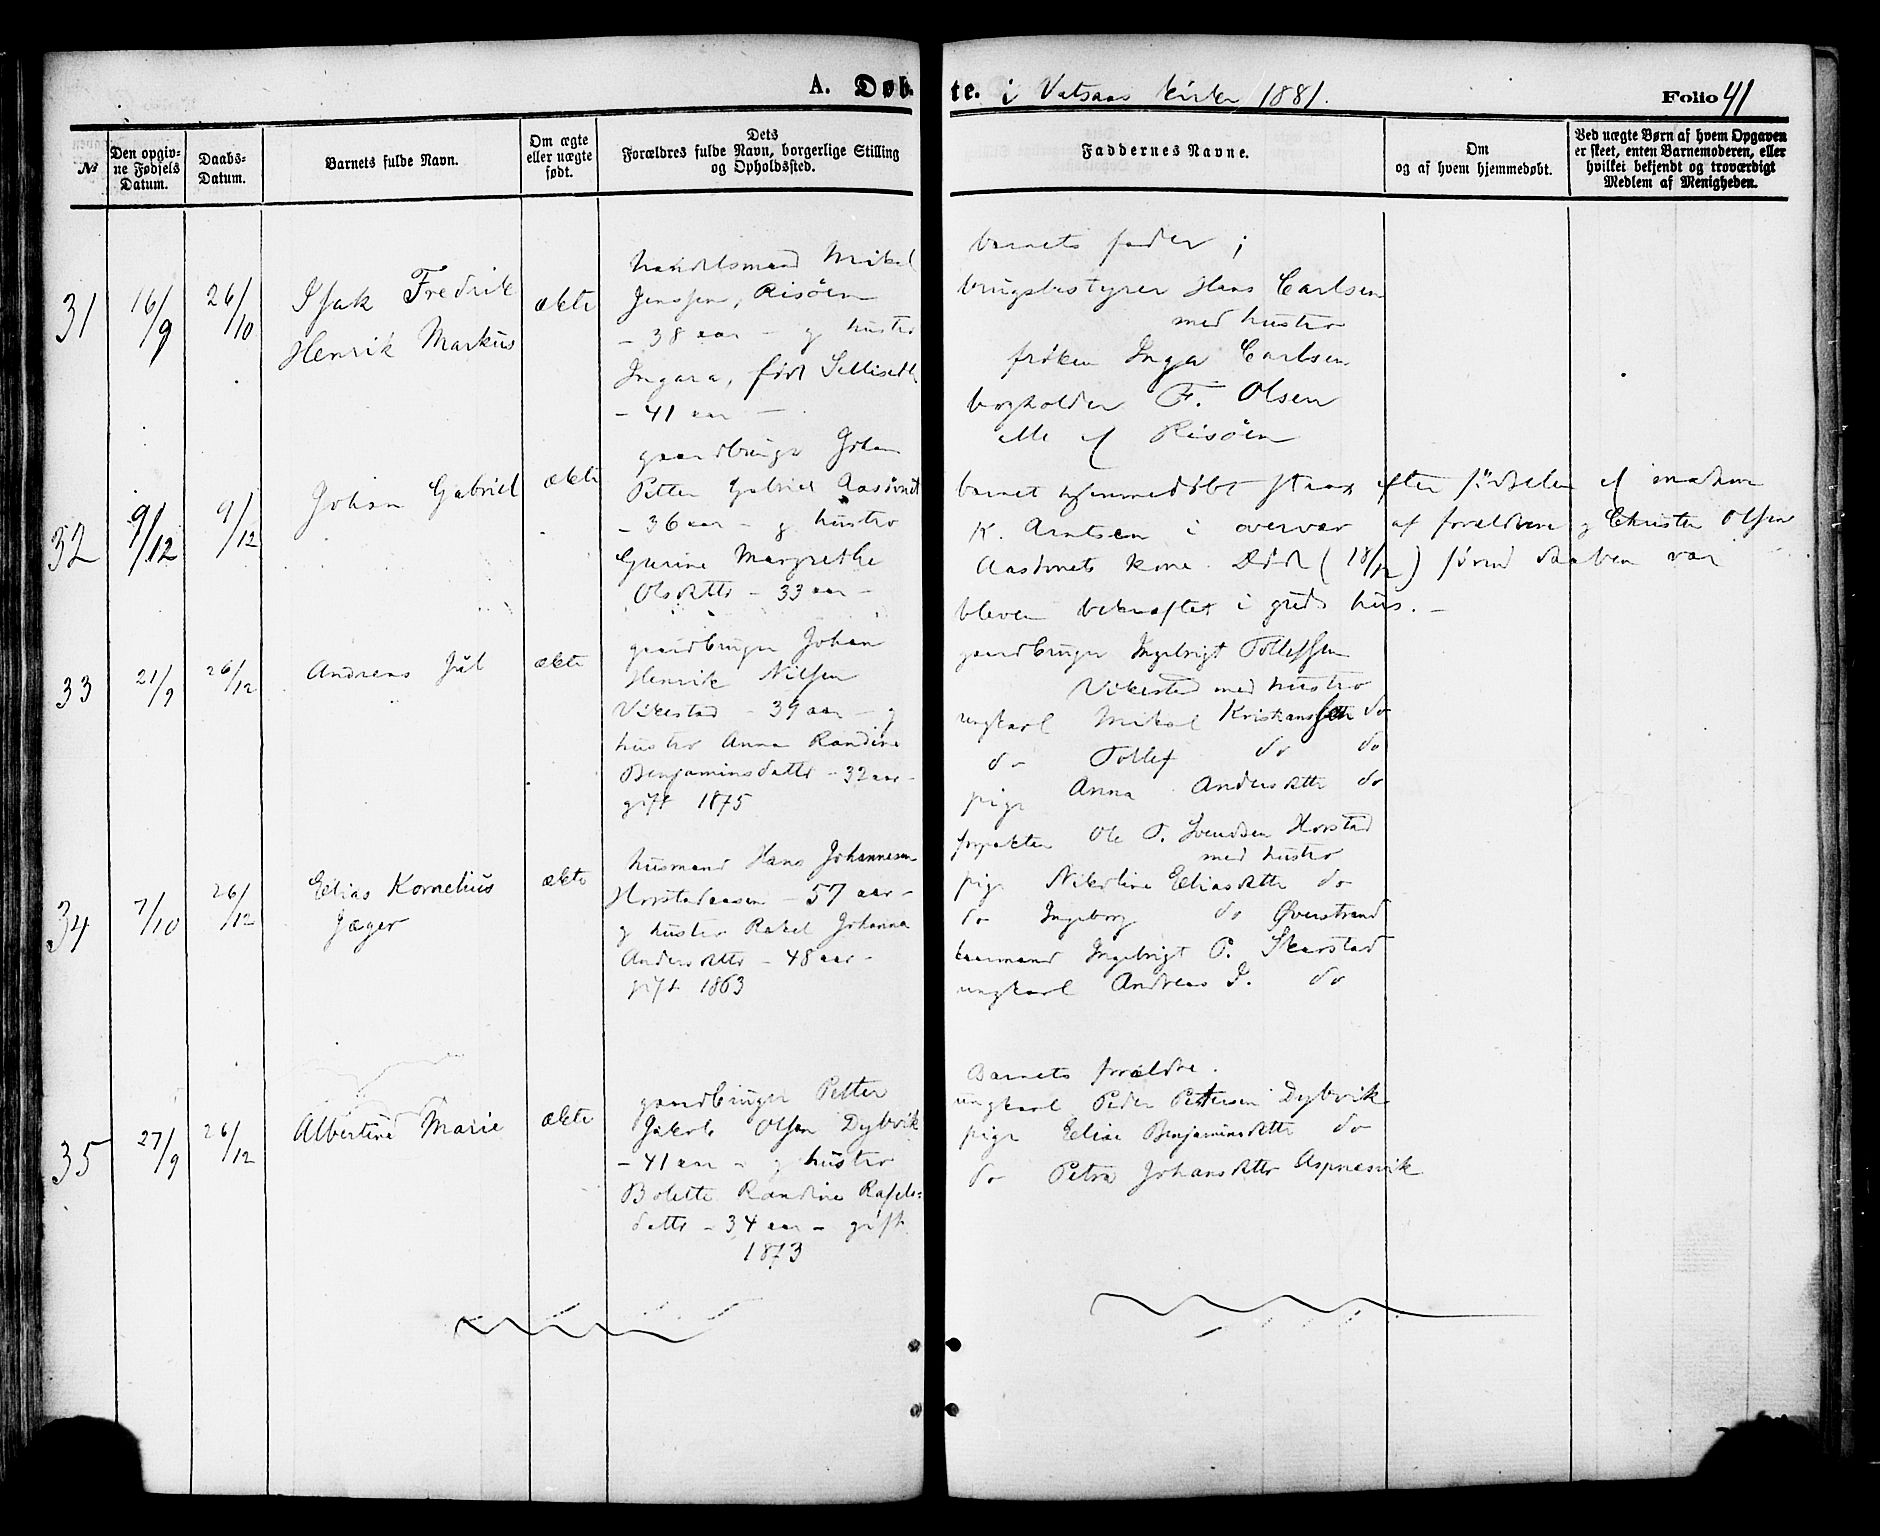 A. Døb-
te. i Vatsaas kirke 1881.
Folio 41
№
Den opgiv-
ne Fødsels
Datum.
Daabs-
Datum.
Barnets fulde Navn.
Om ægte
eller uægte
født.
Dets
Forældres fulde Navn, borgerlige Stilling
og Opholdssted.
Faddernes Navne.
Om
og af hvem hjemmedøbt.
Ved uægte Børn af hvem Opgaven
er skeet, enten Barnemoderen, eller
hvilket bekjendt og troværdigt
Medlem af Menigheden.
31
16/9
26/10
Isak Fredrik
Henrik Markus
ækte
handelsmand Mikal
Jenssen, Risöen
- 38 aar - g hustro
Ingara, född
- 41 aar -
barnets fader ;
brugsbestyrer Hans Carlsen
med hustro
fröken Inga Carlsen
bogholder F. Olsen
alle af Risöen
32
9/12
9/12
Johan Gabriel
ækte
gaardbruger Johan
Petter Gabriel Aasövnet
- 36 aar - g hustro
Gurine Margrethe
Olsdattr - 33 aar -
barnet hjemmedöbt strax efter födselen af madam
K. Arntsen i overvær af forældrene g Olsen
Aasövnets kone. Död (18/12) förend daaben var
bleven bekræftet i guds hus. -
33
21/9
26/12
Andreas Jul
ækte
gaardbruger Johan
Henrik Nilsen
Vikestad - 39 aar - g
hustro Anna Randine
Benjaminsdattr - 32 aar -
gift 1875
gaardbruger Ingebrigt Tollefsen
Vikestad med hustro
ungkarl Mikal Kristiansen do
do Tollef do do
pige Anna Andersdttr do
34
7/10
26/12
Elias Kornelius
Jæger
ækte
husmand Hans Johannesen
Horstadaasen - 57 aar -
g hustro Rakel Johanna
Andersdattr - 48 aar -
gift 1863
forpakter Ole T. Svendsen Horstad
med hustro
pige Nikoline Eliasdttr do
do Ingeborg do Øverstrand
kaarmand Ingebrigt P. Skarstad
ungkarl Andreas I. do
35
27/9
26/12
Albertine Marie
ækte
gaardbruger Petter
Jakob Olsen Dybvik
- 41 aar - g hustro
Bolette Randine Rafels-
dattr - 34 aar - gift
1873
Barnets forældre.
ungkarl Peder Pettersen Dybvik
pige Elise Benjaminsdttr do
do Petra Johansdttr Aspnesvik